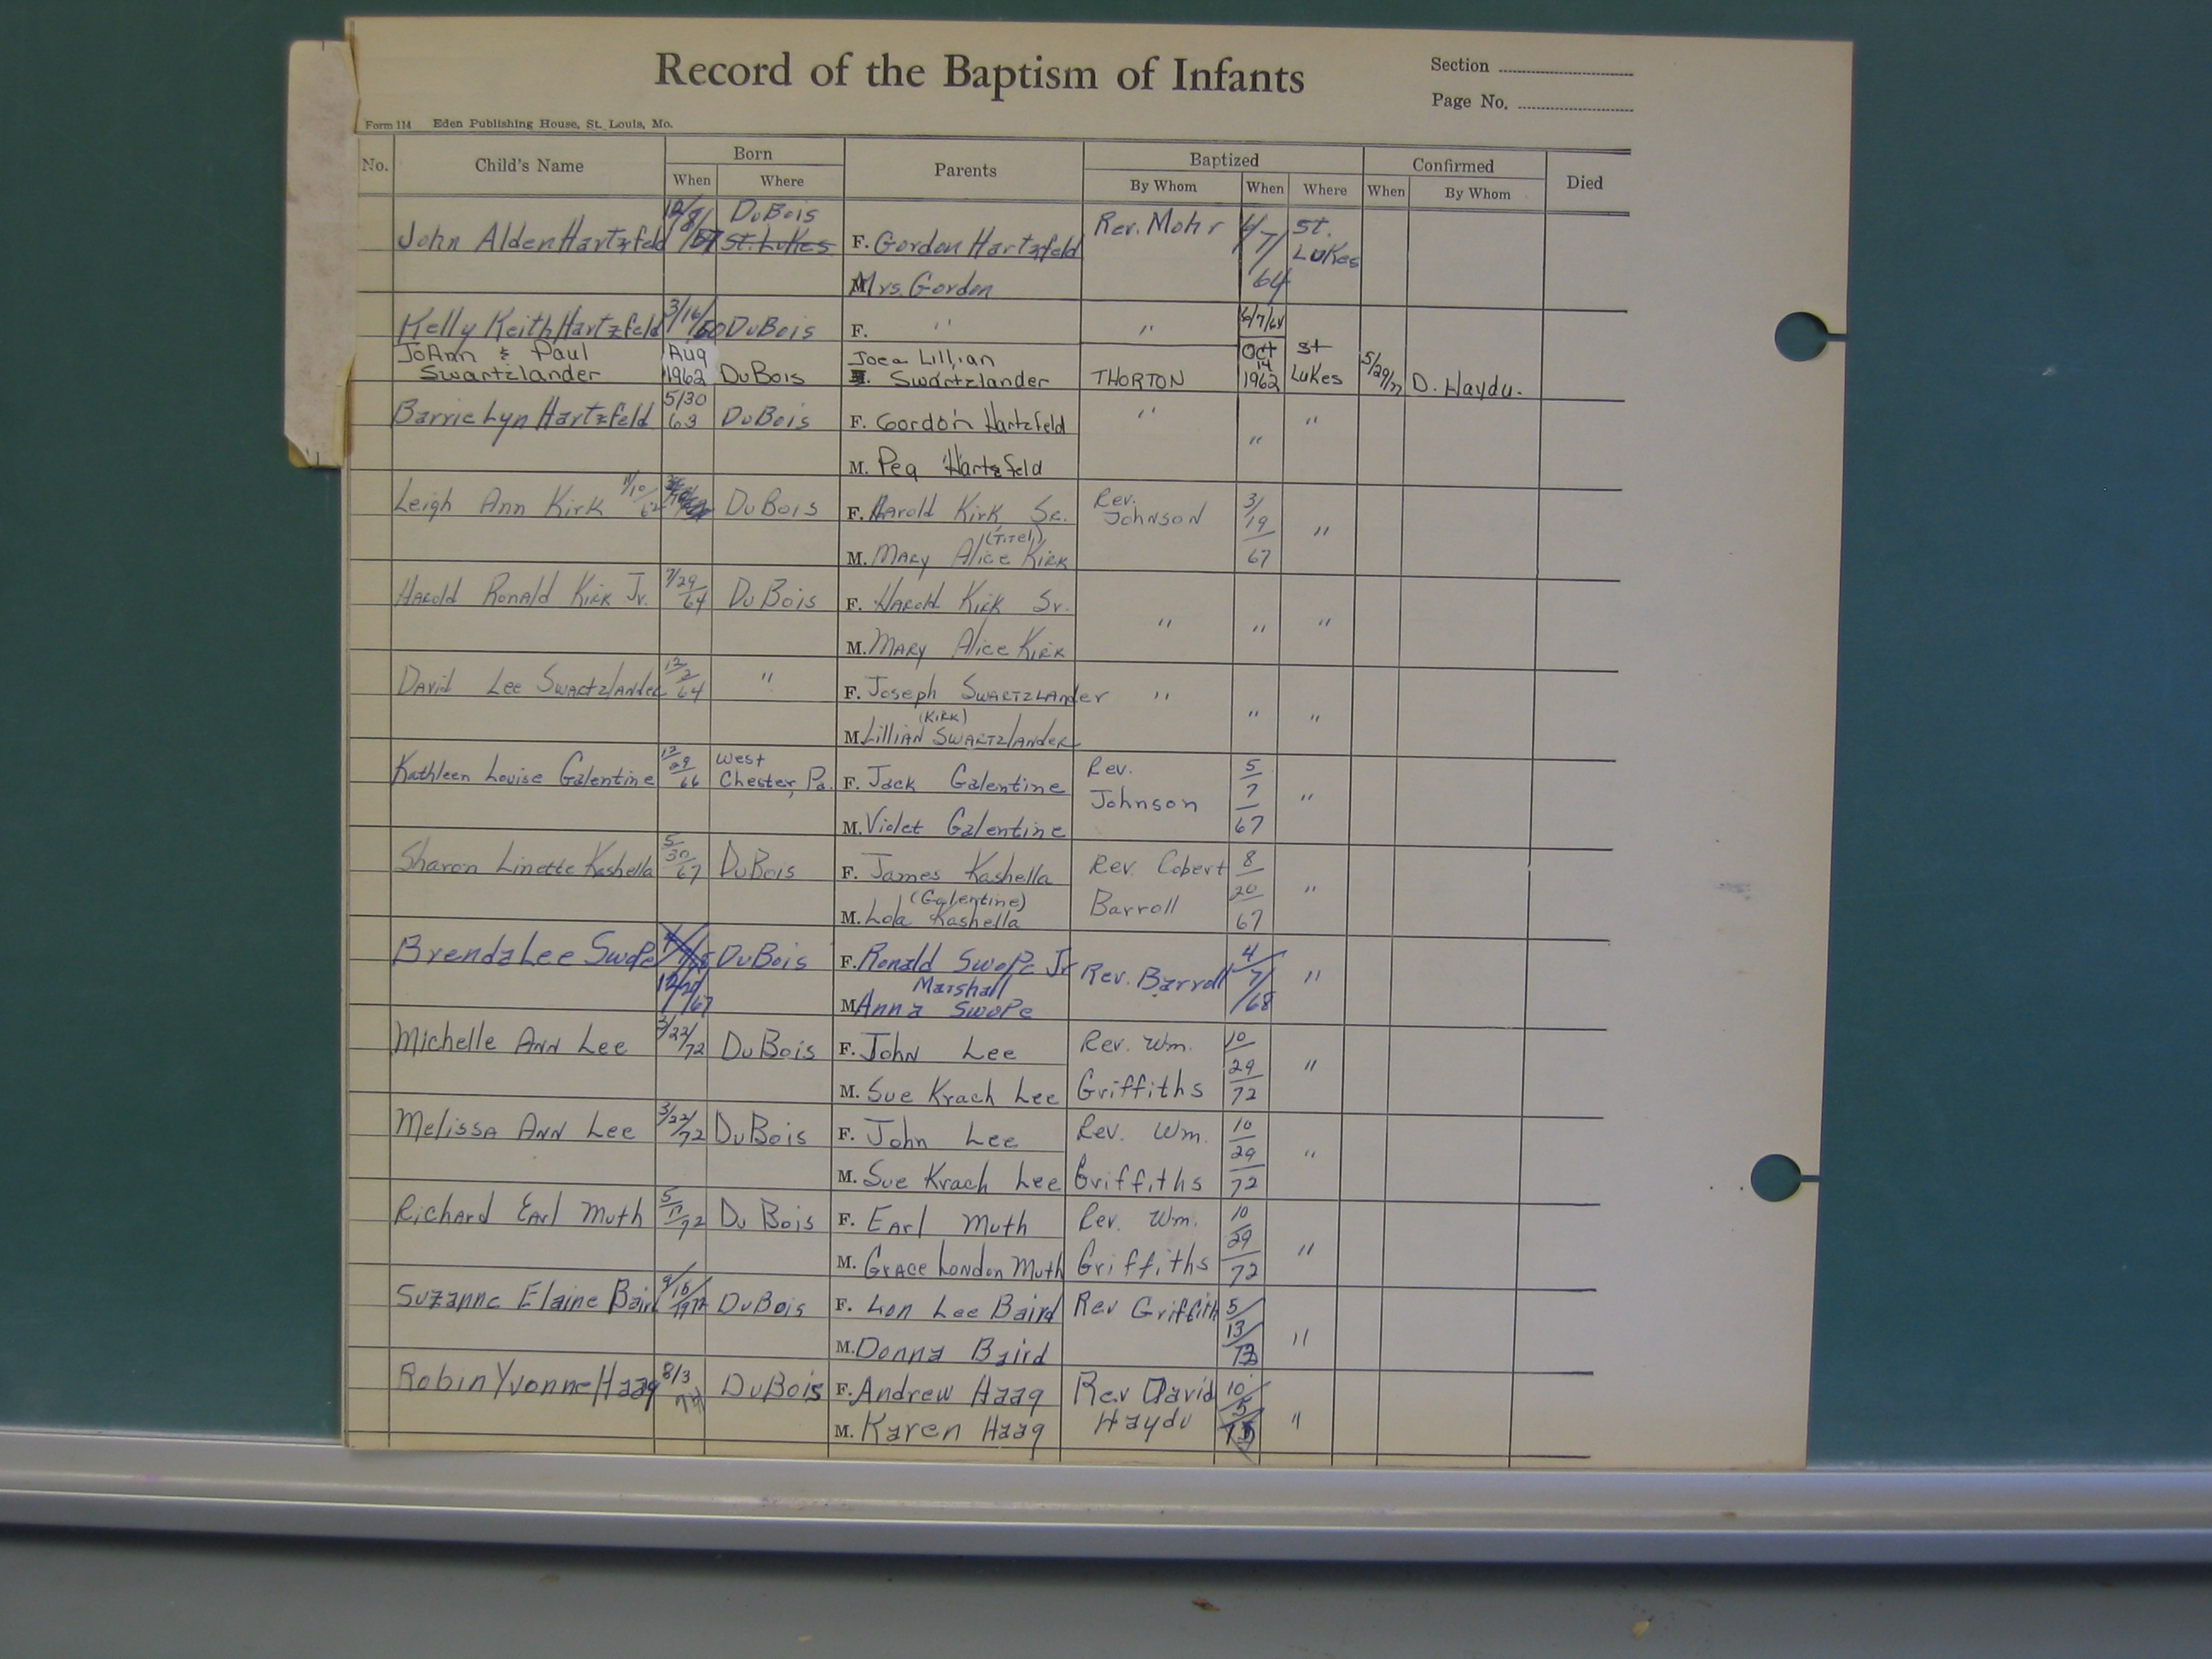 Record of the Baptism of Infants
Section
Page No.
Form 114 Eden Publishing House, St. Louis, Mo.
No. Child's Name Born Parents Baptized Confirmed Died
When Where By Whom When Where When By Whom
DuBois
John Alden Hartzfeld 12/8/57 St. Lukes F. Gordon Hartzfeld Rev. Mohr 4/7/64 St. Lukes
Mrs. Gordon
Kelly Keith Hartzfeld 3/16/60 DuBois F. " " 6/7/64
JoAnn & Paul Aug Joe a Lillian Oct 14 St
Swartzlander 1962 DuBois Swartzlander THORTON 1962 Lukes 5/29/77 D. Haydu.
Barrie Lyn Hartzfeld 5/30 63 DuBois F. Gordon Hartzfeld " " "
M. Peg Hartzfeld
Leigh Ann Kirk 11/10/62 DuBois F. Harold Kirk Sr. Rev. Johnson 3/19/67 "
(Titel)
M. Mary Alice Kirk
Harold Ronald Kirk Jr. 7/29/64 DuBois F. Harold Kirk Sr. " " "
M. Mary Alice Kirk
David Lee Swartzlander 12/2/64 " F. Joseph Swartzlander " " "
(Kirk)
M. Lillian Swartzlander
Kathleen Louise Galentine 12/29/66 West Chester, Pa. F. Jack Galentine Rev. Johnson 5/7/67 "
M. Violet Galentine
Sharon Linette Kashella 5/30/67 DuBois F. James Kashella Rev. Cobert Barroll 8/20/67 "
(Galentine)
M. Lola Kashella
Brenda Lee Swope 12/21/67 DuBois F. Ronald Swope Jr Rev. Barroll 4/7/68 "
Marshall
M. Anna Swope
Michelle Ann Lee 3/22/72 DuBois F. John Lee Rev. Wm. 10/29/72 "
M. Sue Krach Lee Griffiths
Melissa Ann Lee 3/22/72 DuBois F. John Lee Rev. Wm. 10/29/72 "
M. Sue Krach Lee Griffiths
Richard Earl Muth 5/17/72 Du Bois F. Earl Muth Rev. Wm. 10/29/72 "
M. Grace London Muth Griffiths
Suzanne Elaine Baird 9/15/1972 DuBois F. Lon Lee Baird Rev Griffith 5/13/73 "
M. Donna Baird
Robin Yvonne Haag 8/3 74 DuBois F. Andrew Haag Rev David 10/5/75 "
M. Karen Haag Haydu